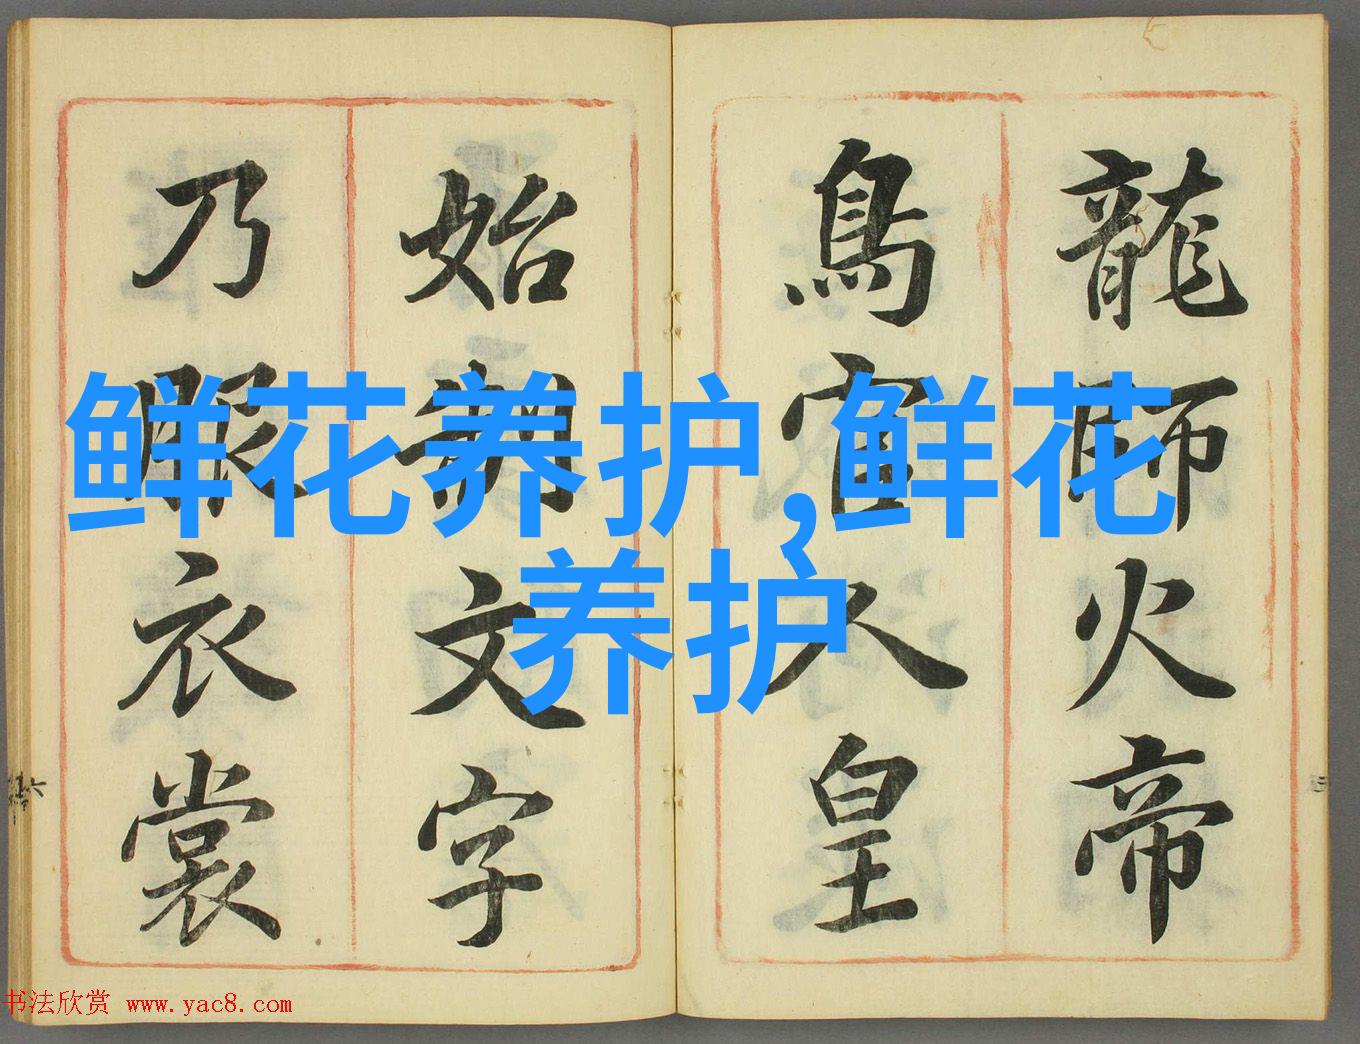 鲜花养护,鲜花
养护
龍師火帝
鳥官人皇
始制文字
乃服衣裳
书法欣赏 www.yac8.com